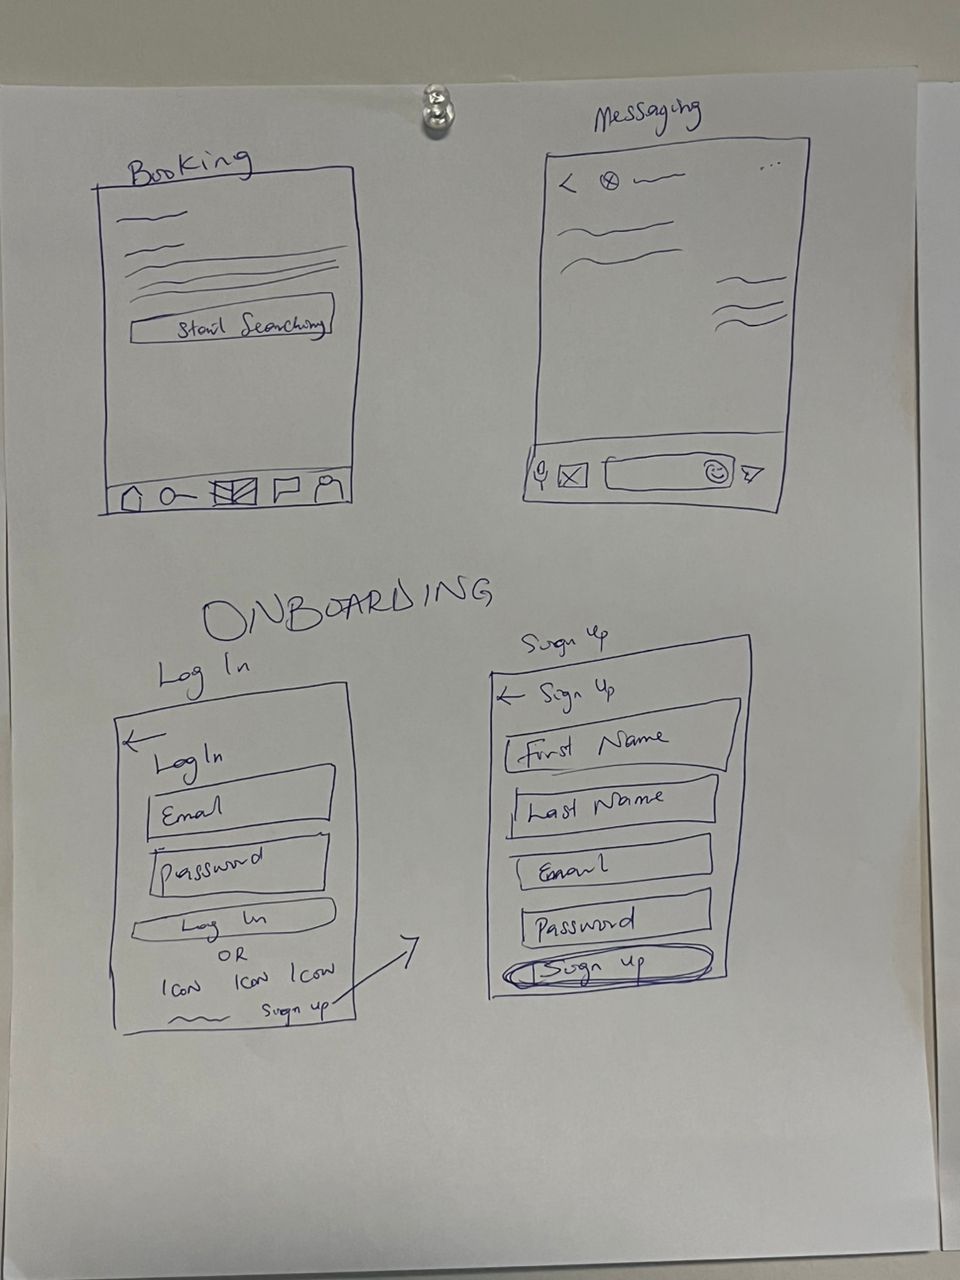 Booking
Start Searching
Messaging
ONBOARDING
Log In
Log In
Email
Password
Log In
OR
Icon Icon Icon
Sign up
Sign up
Sign up
First Name
Last Name
Email
Password
Sign up